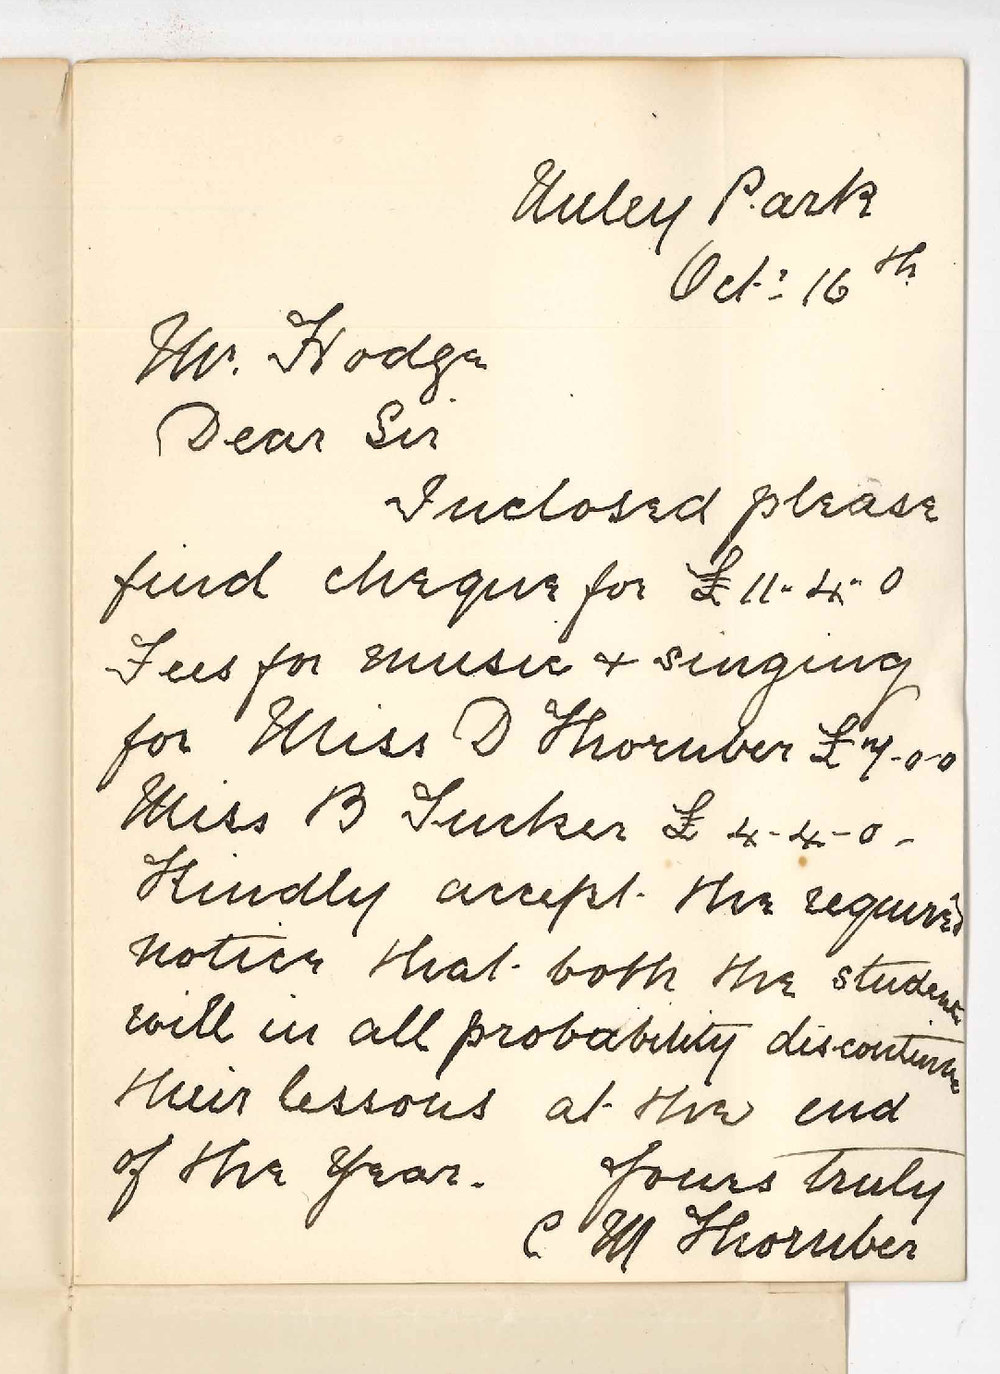 Unley Park
Oct: 16th
Mr. Hodge
Dear Sir
Inclosed please
find cheque for £11-4-0
Fees for music & singing
for Miss D Thornber £7-0-0
Miss B Tucker £4-4-0-
Kindly accept the required
notice that both the students
will in all probability discontinue
their lessons at the end
of the Year. Yours truly
C M Thornber